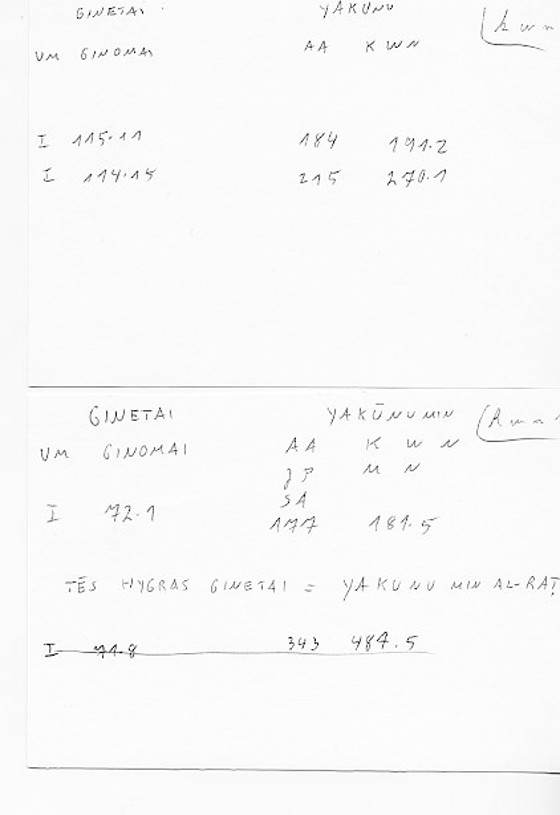 GINETAI YAKUNU
VM GINOMAI AA K W N (kwn
I 115.11 184 191.2
I 114.15 215 270.1
GINETAI YAKŪNU MIN
VM GINOMAI AA K W N
M N
SA
I 72.1 177 181.5
TĒS HYGRAS GINETAI = YAKUNU MIN AL-RAṬ
I 71.8 343 484.5